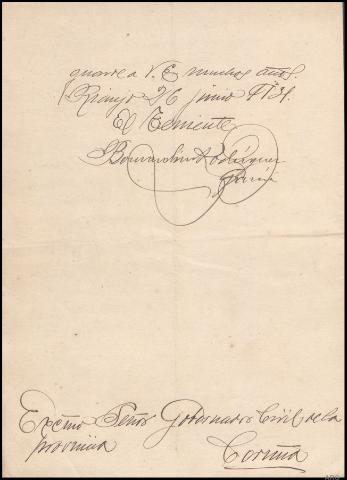 guarde a V. E muchos años.
Rianjo 26 junio 1931.
El Teniente
Rodriguez
Garcia
Excmo Señor Gobernador Civil de la
provincia
Coruña